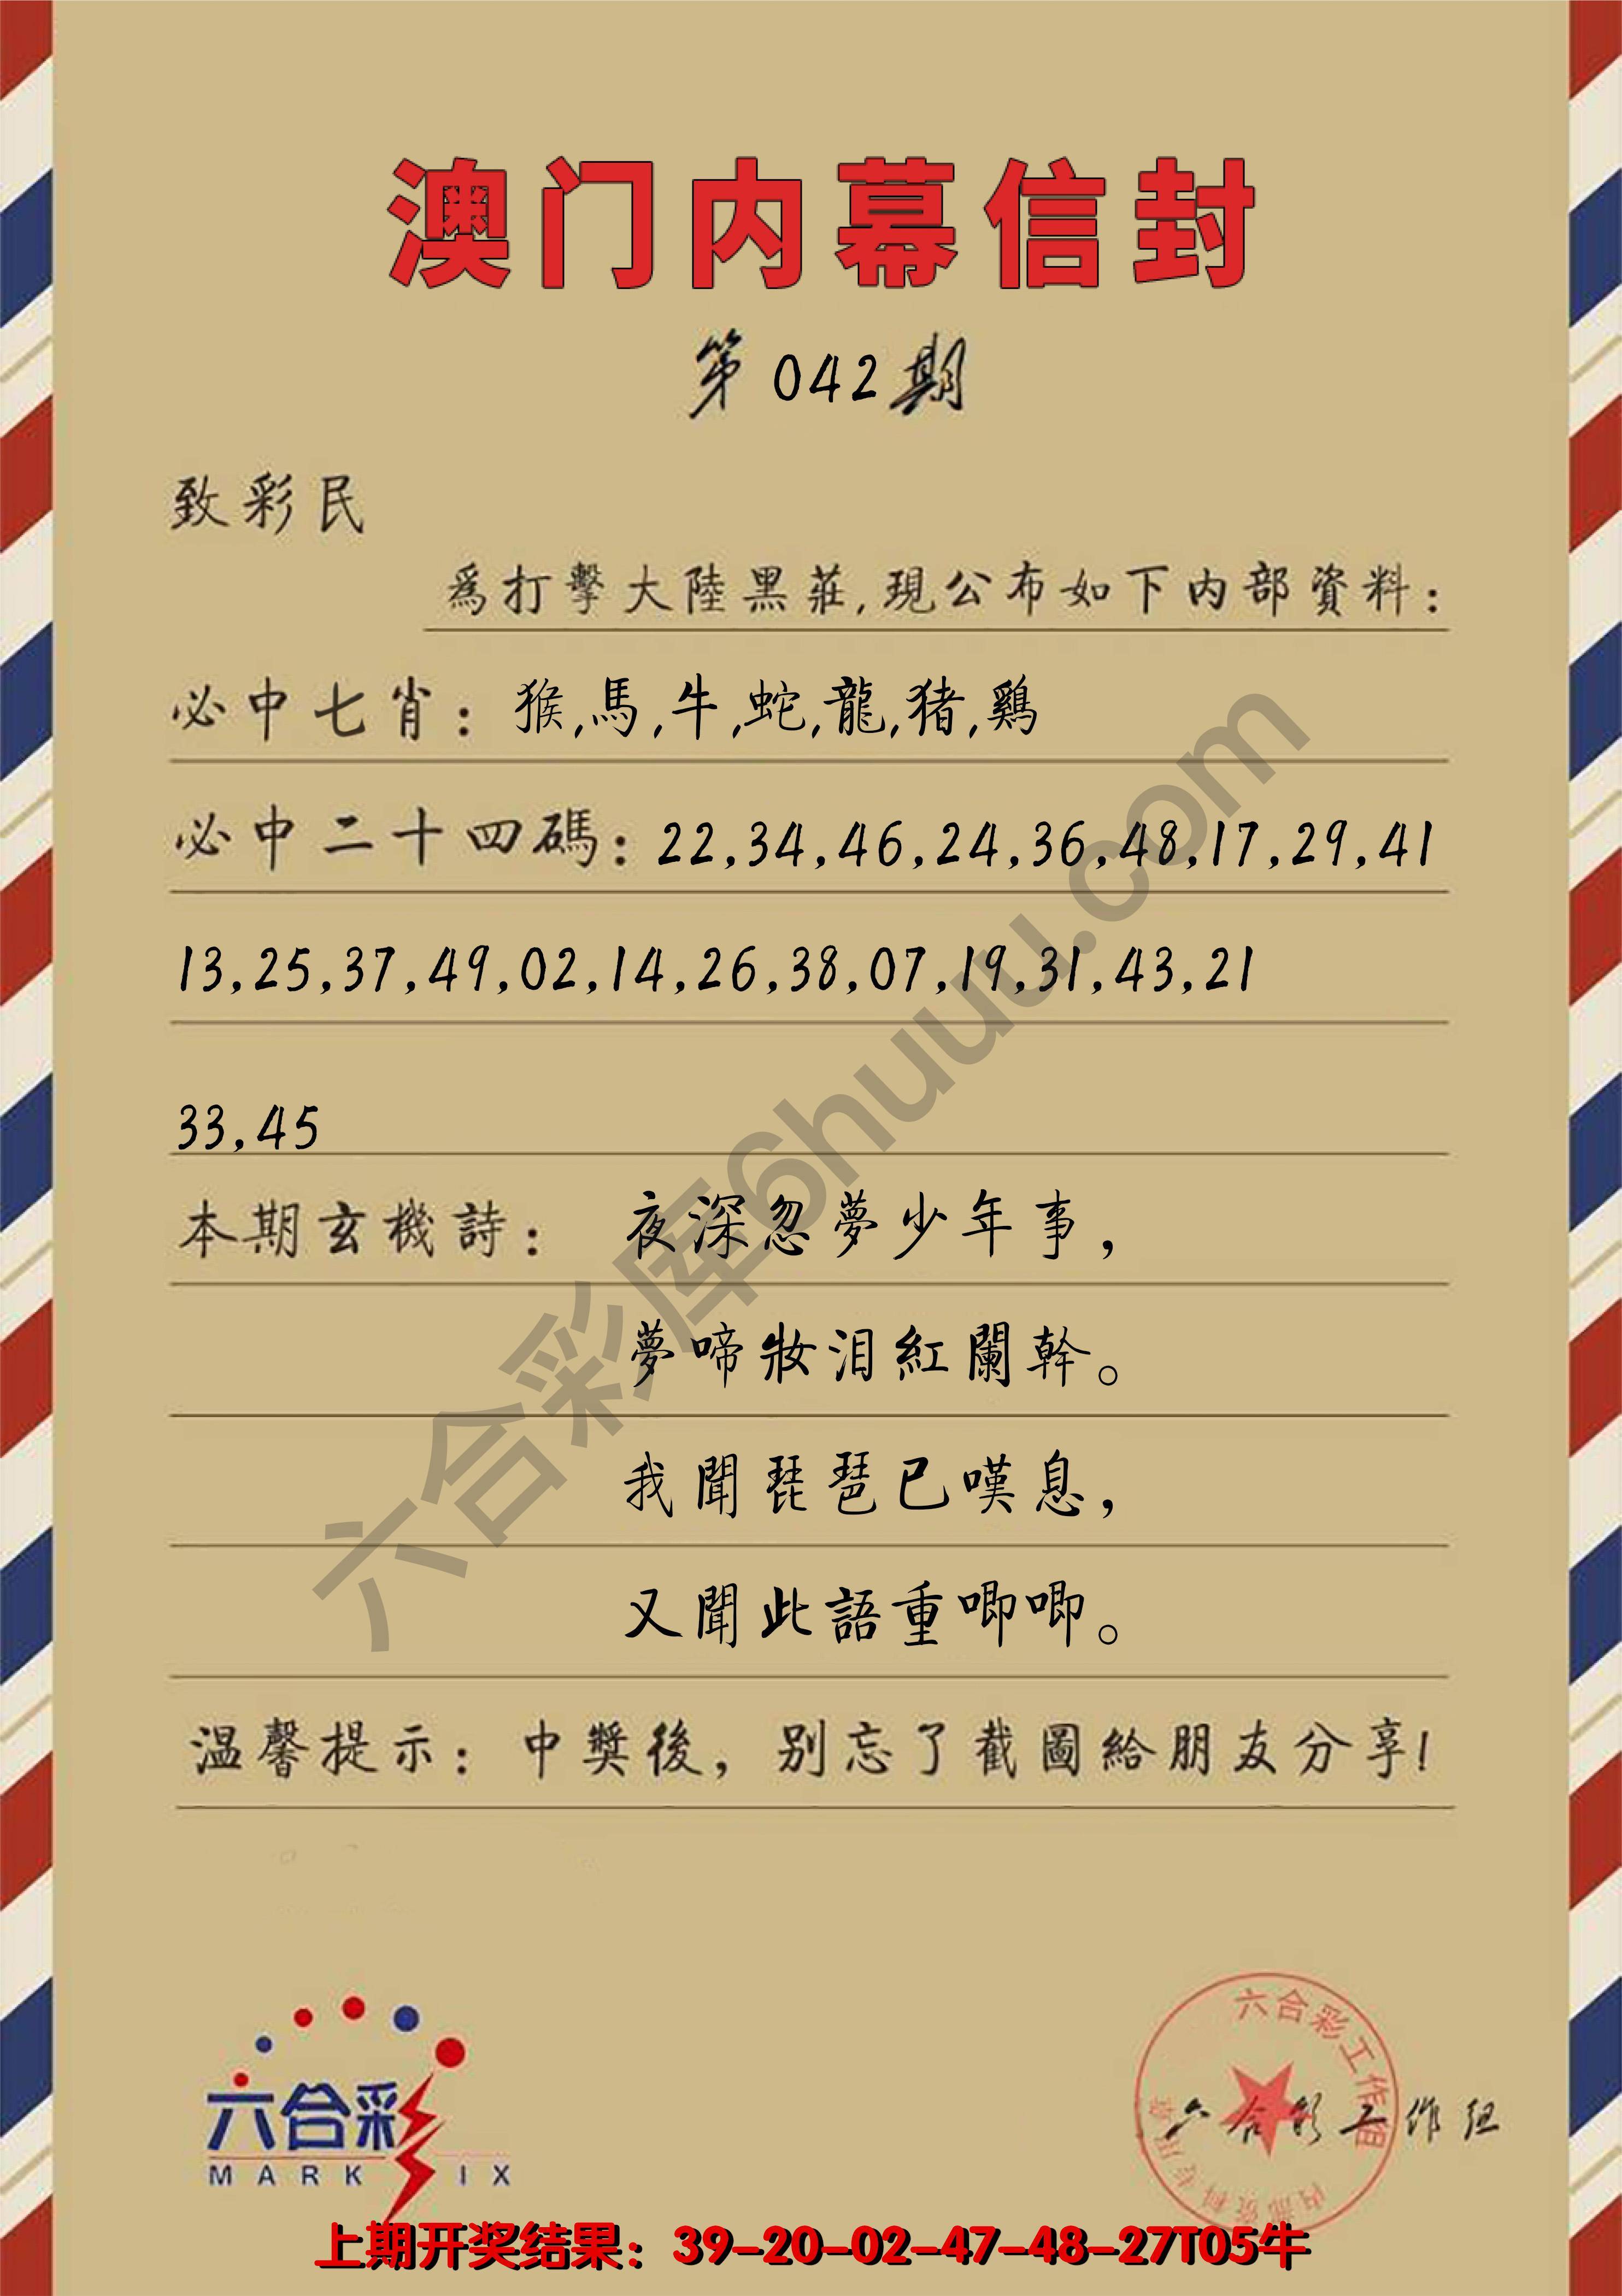 澳门内幕信封
第042期
致彩民
爲打擊大陸黑莊,現公布如下内部資料:
必中七肖: 猴,馬,牛,蛇,龍,猪,鷄
必中二十四碼: 22,34,46,24,36,48,17,29,41
13,25,37,49,02,14,26,38,07,19,31,43,21
33,45
本期玄機詩: 夜深忽夢少年事,
夢啼妝泪紅闌幹。
我聞琵琶已嘆息,
又聞此語重唧唧。
温馨提示: 中獎後, 别忘了截圖給朋友分享!
六合彩库6huuu.com
六合彩
MARK SIX
六合彩工作组
内部资料专用章
六合彩工作组
上期开奖结果: 39-20-02-47-48-27T05牛